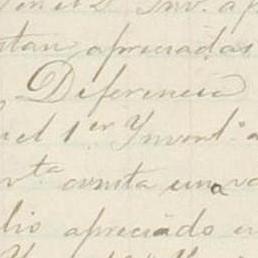 en el 2º Inv.º ap
stan apreciadas
Diferencia
n el 1.er Ynvent.º a
ta consta una va
lio apreciado en